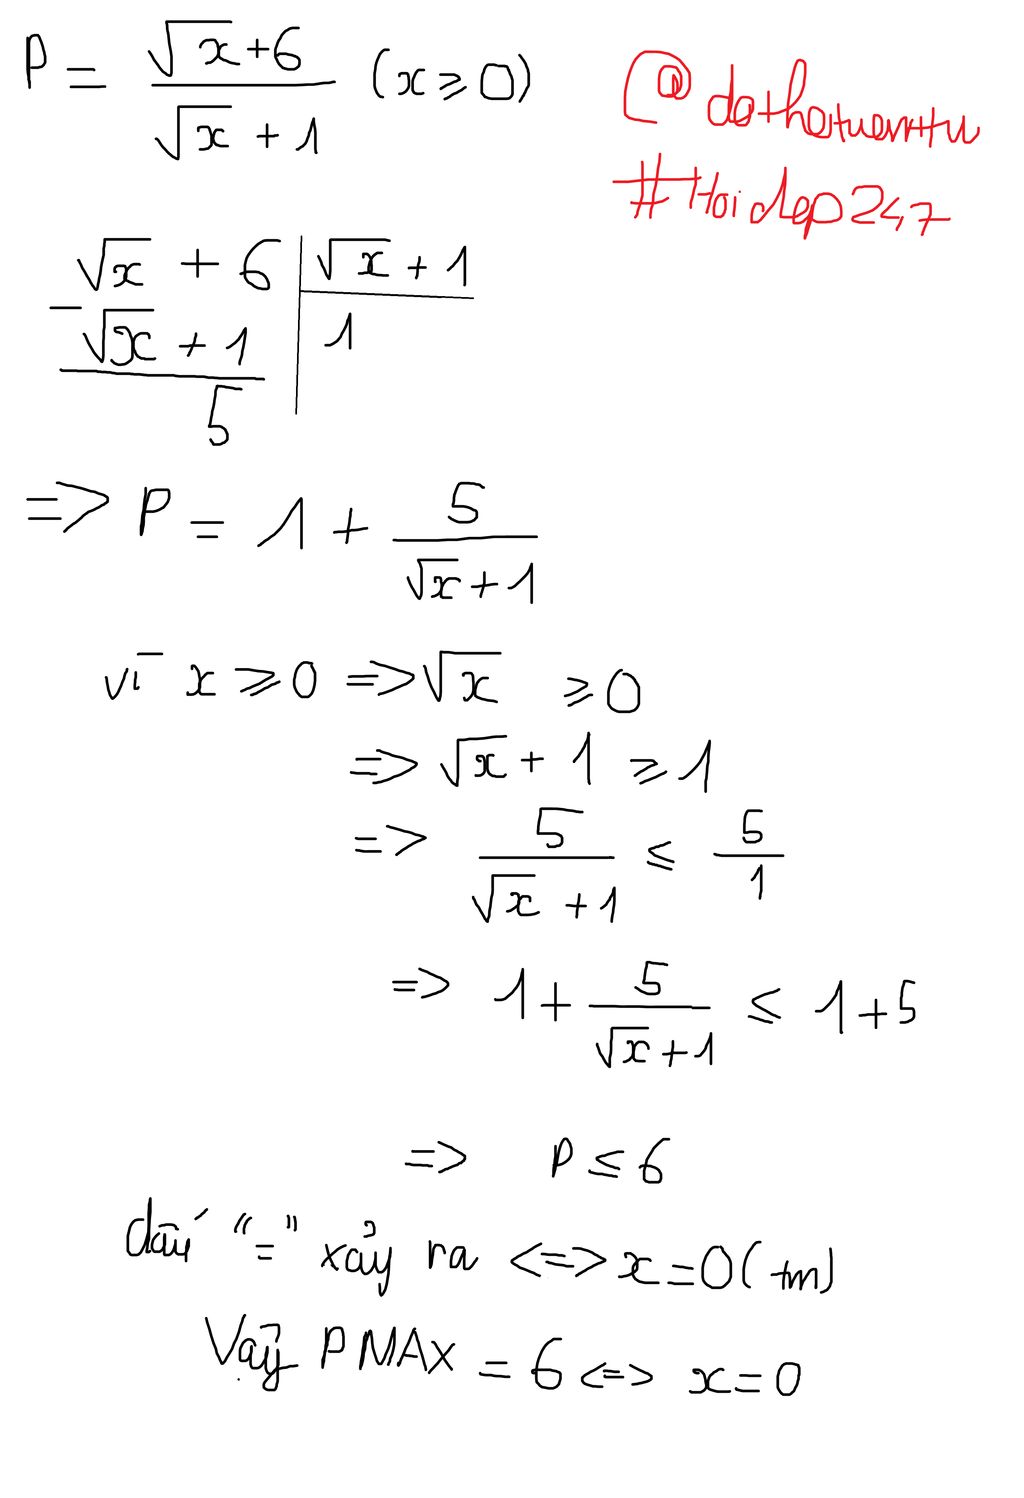 P = (√x+6)/(√x+1) (x⩾0)
#Hoidap247
√x + 6 | √x + 1
- √x + 1 | 1
5
=> P = 1 + 5/(√x+1)
vì x ⩾ 0 => √x ⩾ 0
=> √x + 1 ⩾ 1
=> 5/(√x+1) ≤ 5/1
=> 1 + 5/(√x+1) ≤ 1+5
=> P ≤ 6
dấu "=" xảy ra <=> x=0 (tm)
Vậy P MAX = 6 <=> x=0